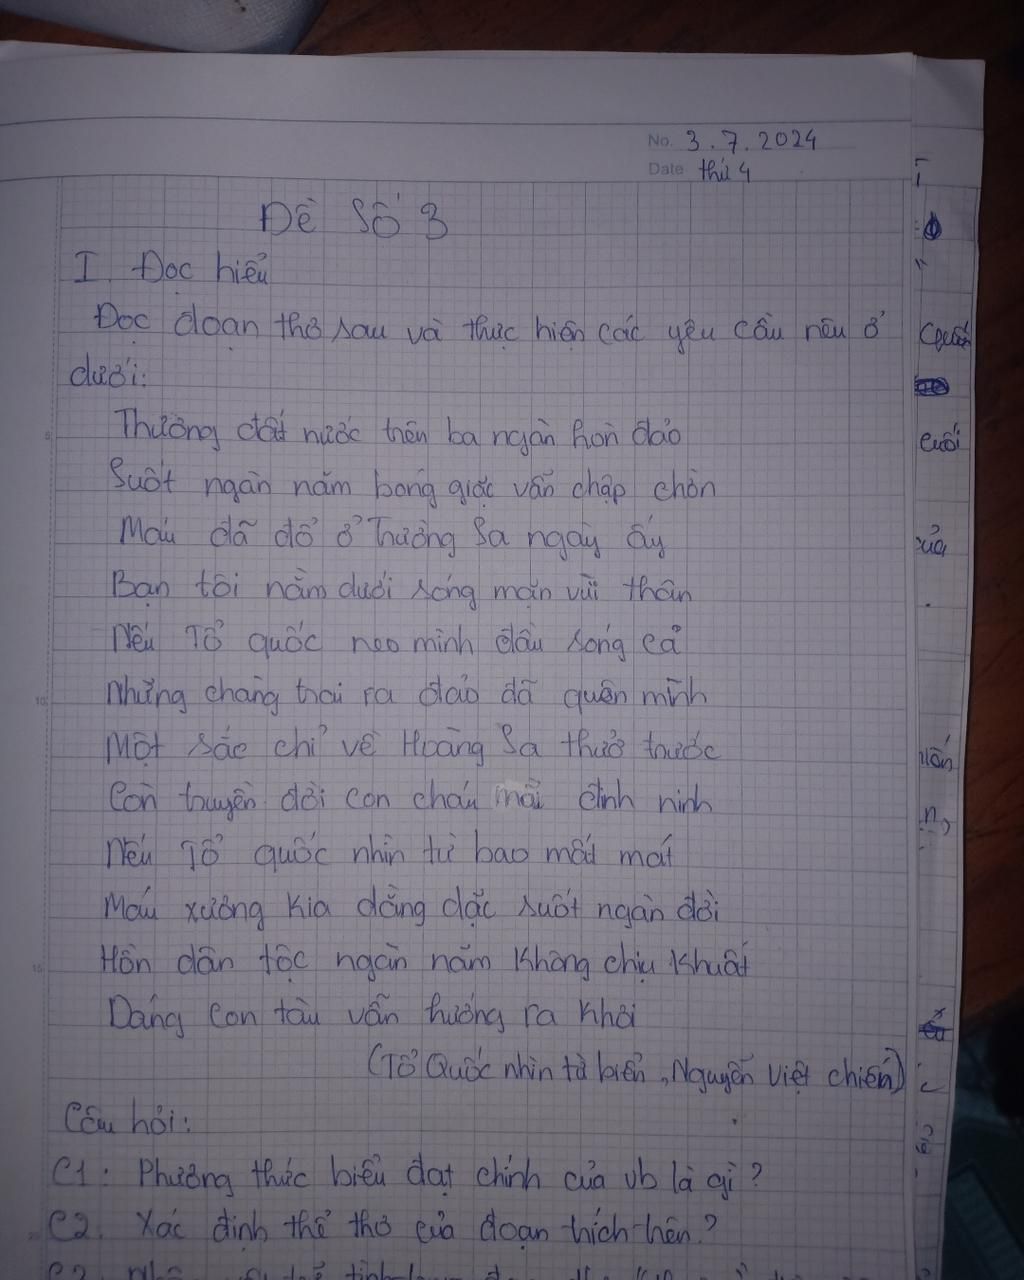 No. 3.7.2024
Date thứ 4
Đề Số 3
I Đọc hiểu
Đọc đoạn thơ sau và thực hiện các yêu cầu nêu ở
dưới:
Thương đất nước trên ba ngàn hòn đảo
Suốt ngàn năm bóng giặc vẫn chập chờn
Máu đã đổ ở Trường Sa ngày ấy
Bạn tôi nằm dưới sóng mặn vùi thân
Nếu Tổ quốc neo mình đầu sóng cả
Những chàng trai ra đảo đã quên mình
Một sắc chỉ về Hoàng Sa thuở trước
Còn truyền đời con cháu mãi đinh ninh
Nếu Tổ quốc nhìn từ bao mất mát
Máu xương kia dằng dặc suốt ngàn đời
Hồn dân tộc ngàn năm không chịu khuất
Dáng con tàu vẫn hướng ra khơi
(Tổ Quốc nhìn từ biển, Nguyễn Việt chiến)
Câu hỏi:
C1: Phương thức biểu đạt chính của vb là gì?
C2. Xác định thể thơ của đoạn trích trên?
cuối